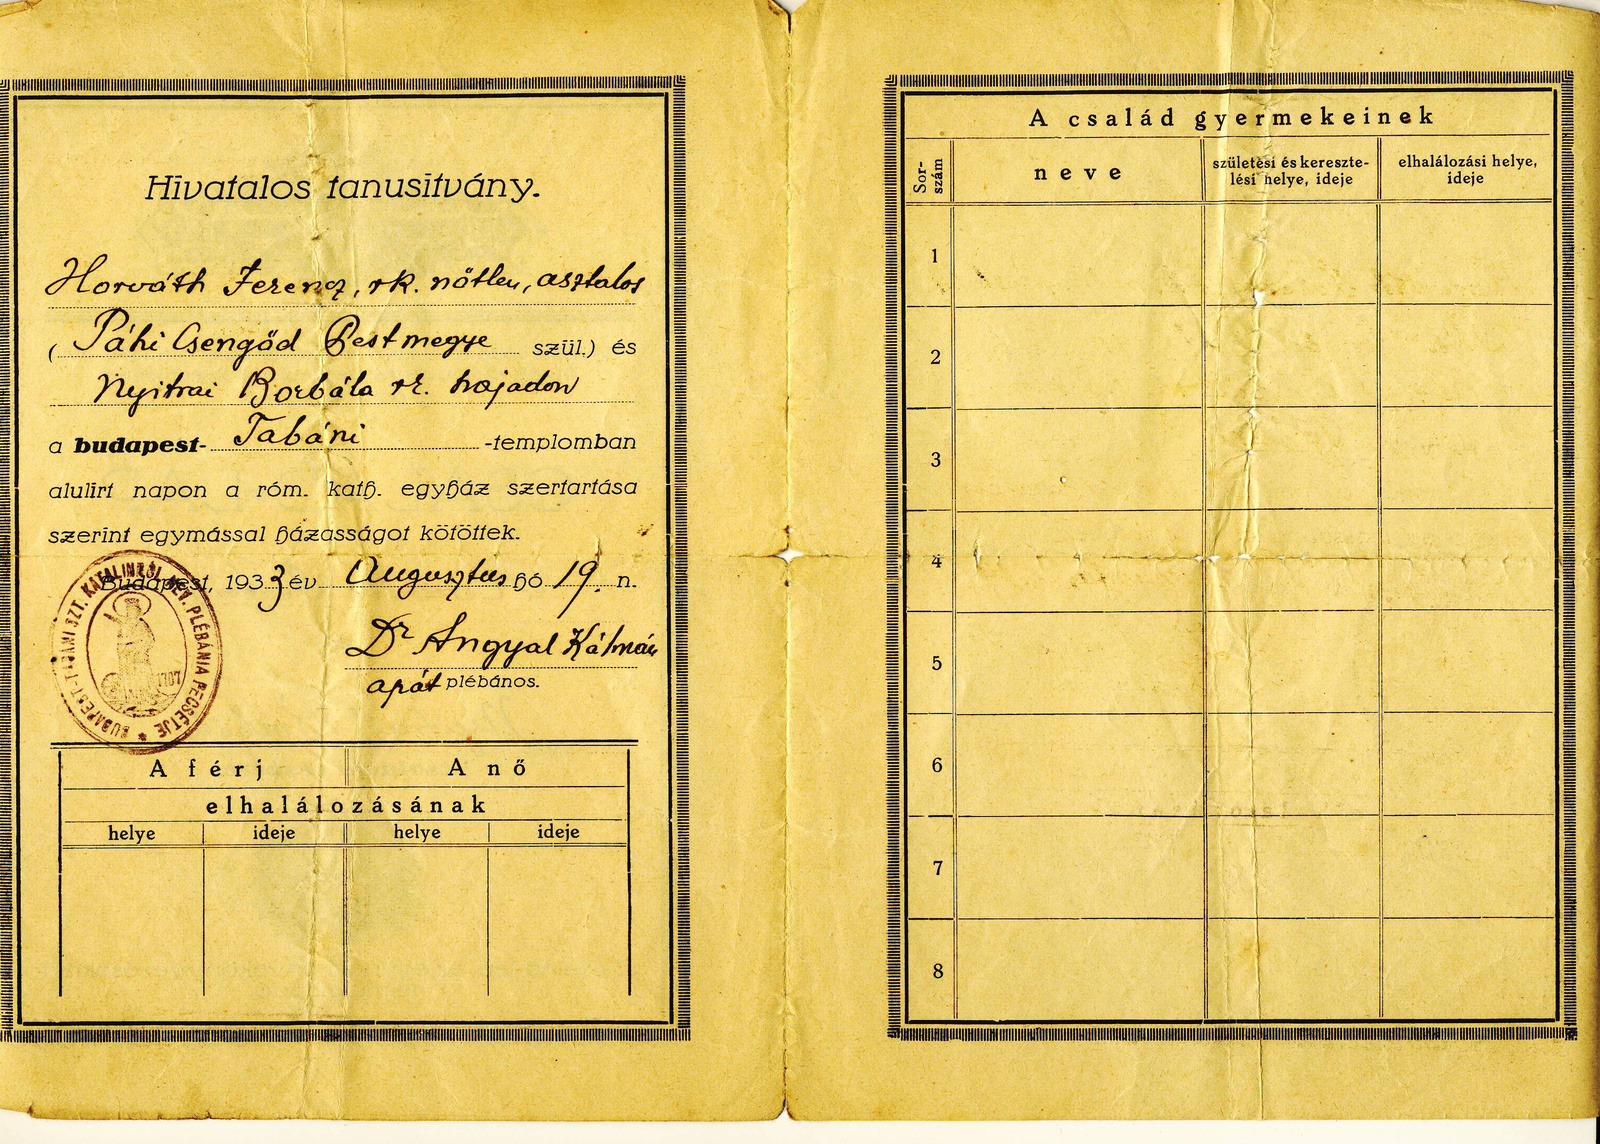 Hivatalos tanusitvány.
Horváth Ferencz, rk. nőtlen, asztalos
( Páhi Csengőd Pestmegye szül.) és
Nyitrai Borbála rk. hajadon
a budapest- Tabáni -templomban
alulirt napon a róm. kath. egyház szertartása
szerint egymással házasságot kötöttek.
Budapest, 1933 év Augusztus hó 19. n.
Dr Angyal Kálmán
apát plébános.
BUDAPEST-TABANI SZT. KATALINRÓL NEV. PLÉBÁNIA PECSÉTJE
A férj A nő
elhalálozásának
helye ideje helye ideje
A család gyermekeinek
Sor-
szám
neve
születési és keresze-
lési helye, ideje
elhalálozási helye,
ideje
1
2
3
4
5
6
7
8